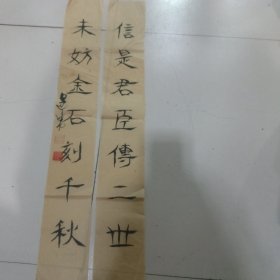 信是君臣傳二世
未妨金石刻千秋